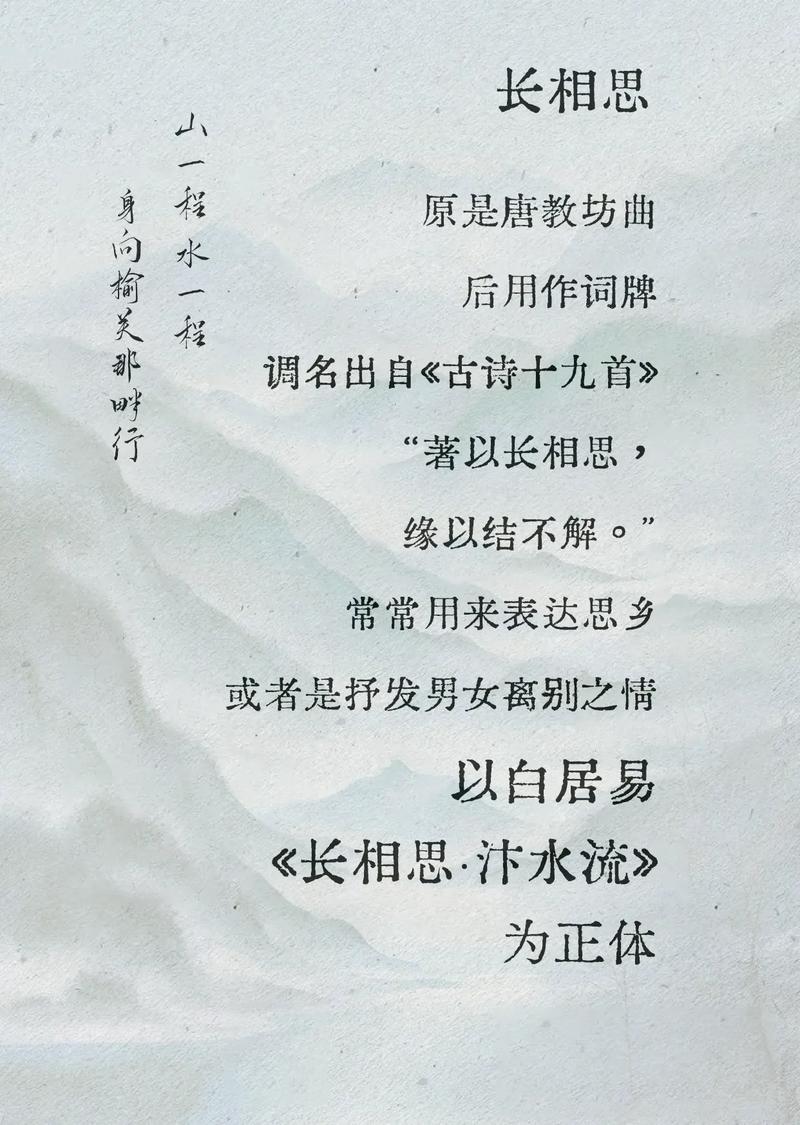 长相思
原是唐教坊曲
后用作词牌
调名出自《古诗十九首》
“著以长相思，
缘以结不解。”
常常用来表达思乡
或者是抒发男女离别之情
以白居易
《长相思·汴水流》
为正体
山一程水一程
身向榆关那畔行